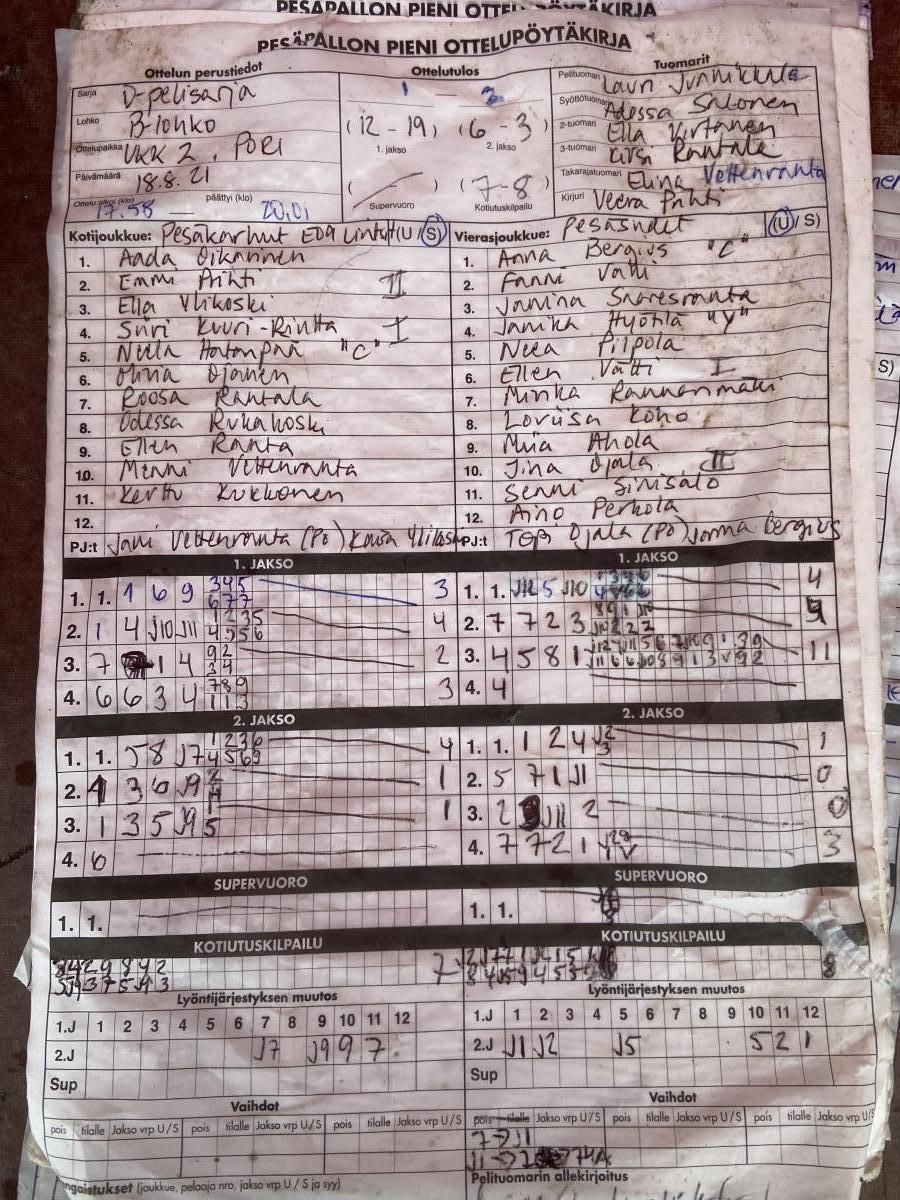 PESÄPALLON PIENI OTTELUPÖYTÄKIRJA
PESÄPALLON PIENI OTTELUPÖYTÄKIRJA
Ottelun perustiedot
Sarja D-pelisarja
Lohko B-lohko
Ottelupaikka UKK 2, PORI
Päivämäärä 18.8.21
Ottelu alkoi (klo) 17.58 — päättyi (klo) 20.01
Ottelutulos
1 — 2
(12 - 19) (6 - 3)
1. jakso 2. jakso
( ) (7-8)
Supervuoro Kotiutuskilpailu
Tuomarit
Pelituomari Lauri
Syöttötuomari Adessa Salonen
2-tuomari Ella Virtanen
3-tuomari Kirsi Rantala
Takarajatuomari Elina Vettenranta
Kirjuri Veera Prihti
Kotijoukkue: Pesäkarhut (U / S)
1. Aada Oikarinen
2. Emmi Prihti II
3. Ella Ylikoski
4. Siiri Kuuri-Riutta I
5. Neela Hatanpää "C"
6. Ojanen
7. Roosa Rantala
8. Odessa Rukakoski
9. Ellen Ranta
10. Minni Vettenranta
11. Kerttu Kukkonen
12.
PJ:t Jani Vettenranta (PJ) Kaisa Ylikoski
Vierasjoukkue: Pesäsudet (U / S)
1. Anna Bergius "C"
2. Fanni Vätti
3. Janina Saaresranta
4. Janika Hyötilä "V"
5. Neea Pilpola
6. Ellen Vätti I
7. Minka Rannanmäki
8. Loviisa Koho
9. Miia Ahola
10. Iina Ojala II
11. Senni Sinisalo
12. Aino Perkola
PJ:t Topi Ojala (PJ) Jorma Bergius
1. JAKSO
1. 1. 1 6 9 345 677 3
2. 1 4 J10 J11 1235 4956 4
3. 7 1 4 92 34 2
4. 6 6 3 4 789 113 3
1. JAKSO
1. 1. J12 5 J10 4
2. 7 7 2 3
3. 4 5 8 1 11
4. 4
2. JAKSO
1. 1. 5 8 J7 1236 4569 4
2. 1 3 6 J9 1
3. 1 3 5 J9 5 1
4. 6
2. JAKSO
1. 1. 1 2 4 1
2. 5 7 1 J1 0
3. 2 J11 2 0
4. 7 7 2 1 3
SUPERVUORO
1. 1.
SUPERVUORO
1. 1.
KOTIUTUSKILPAILU
7
KOTIUTUSKILPAILU
8
Lyöntijärjestyksen muutos
1.J 1 2 3 4 5 6 7 8 9 10 11 12
2.J J7 J9 9 7
Sup
Lyöntijärjestyksen muutos
1.J 1 2 3 4 5 6 7 8 9 10 11 12
2.J J1 J2 J5 5 2 1
Sup
Vaihdot
pois tilalle Jakso vrp U / S pois tilalle Jakso vrp U / S pois tilalle Jakso vrp U / S
Vaihdot
pois tilalle Jakso vrp U / S pois tilalle Jakso vrp U / S pois tilalle Jakso vrp U / S
7 → J1
(joukkue, pelaaja nro, jakso vrp U / S ja syy)
Pelituomarin allekirjoitus